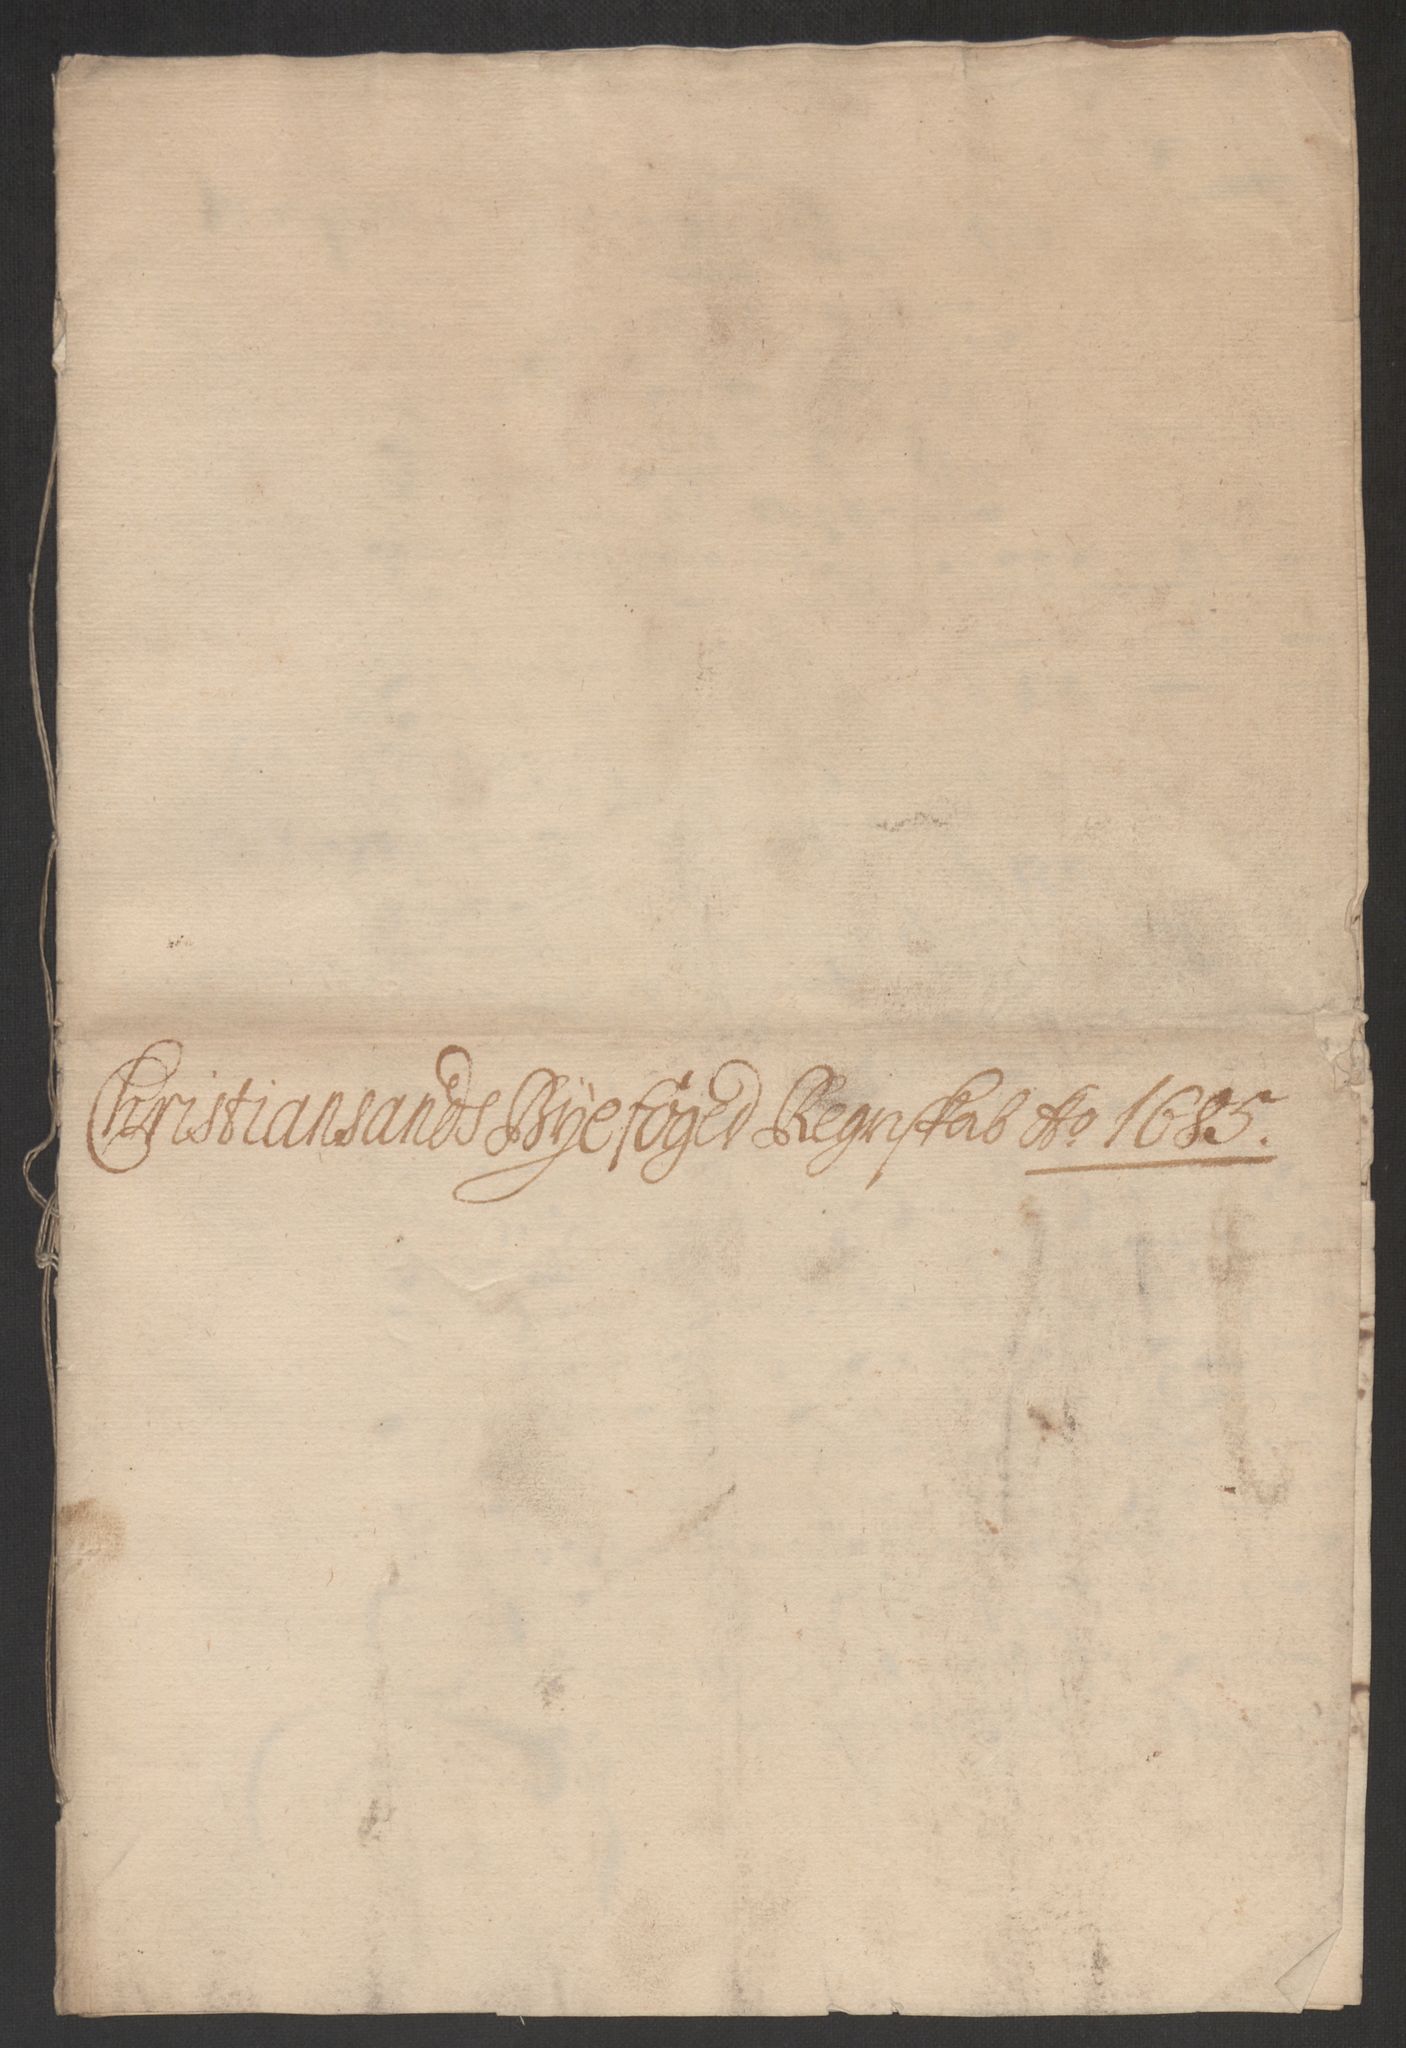 Christiansands Bÿefoged Regnskab Ao 1685.